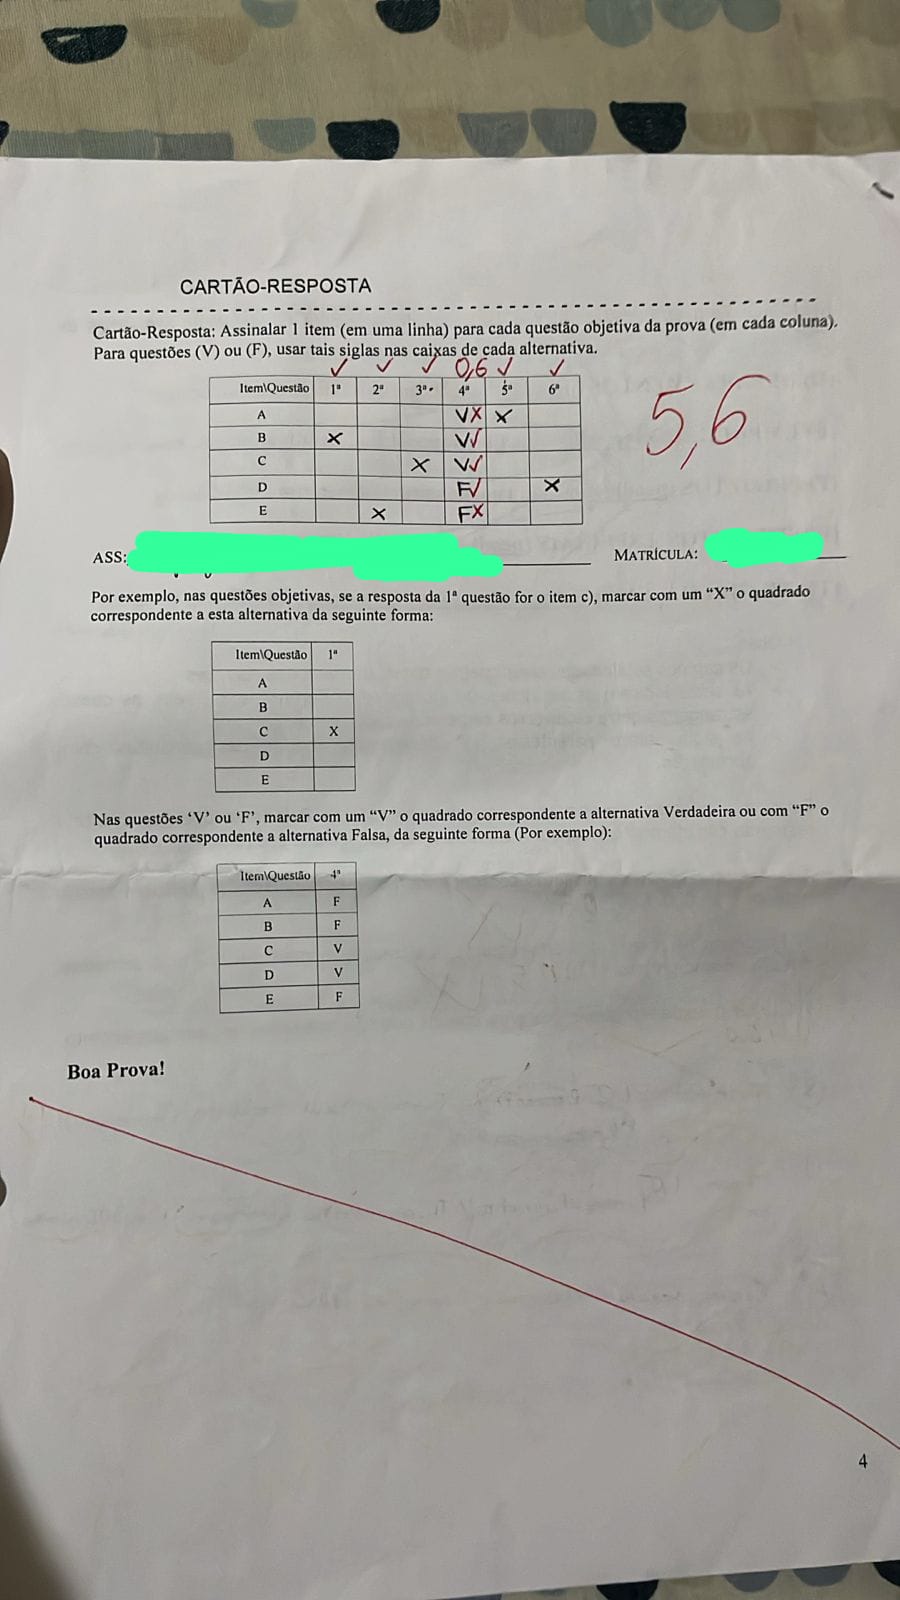 CARTÃO-RESPOSTA
Cartão-Resposta: Assinalar 1 item (em uma linha) para cada questão objetiva da prova (em cada coluna).
Para questões (V) ou (F), usar tais siglas nas caixas de cada alternativa.
✓ ✓ ✓ 0,6 ✓ ✓
Item\Questão 1ª 2ª 3ª 4ª 5ª 6ª
5,6
A V X X
B X V ✓
C X V ✓
D F ✓ X
E X F X
ASS:
MATRÍCULA:
Por exemplo, nas questões objetivas, se a resposta da 1ª questão for o item c), marcar com um “X” o quadrado
correspondente a esta alternativa da seguinte forma:
Item\Questão 1ª
A
B
C X
D
E
Nas questões ‘V’ ou ‘F’, marcar com um “V” o quadrado correspondente a alternativa Verdadeira ou com “F” o
quadrado correspondente a alternativa Falsa, da seguinte forma (Por exemplo):
Item\Questão 4ª
A F
B F
C V
D V
E F
Boa Prova!
4